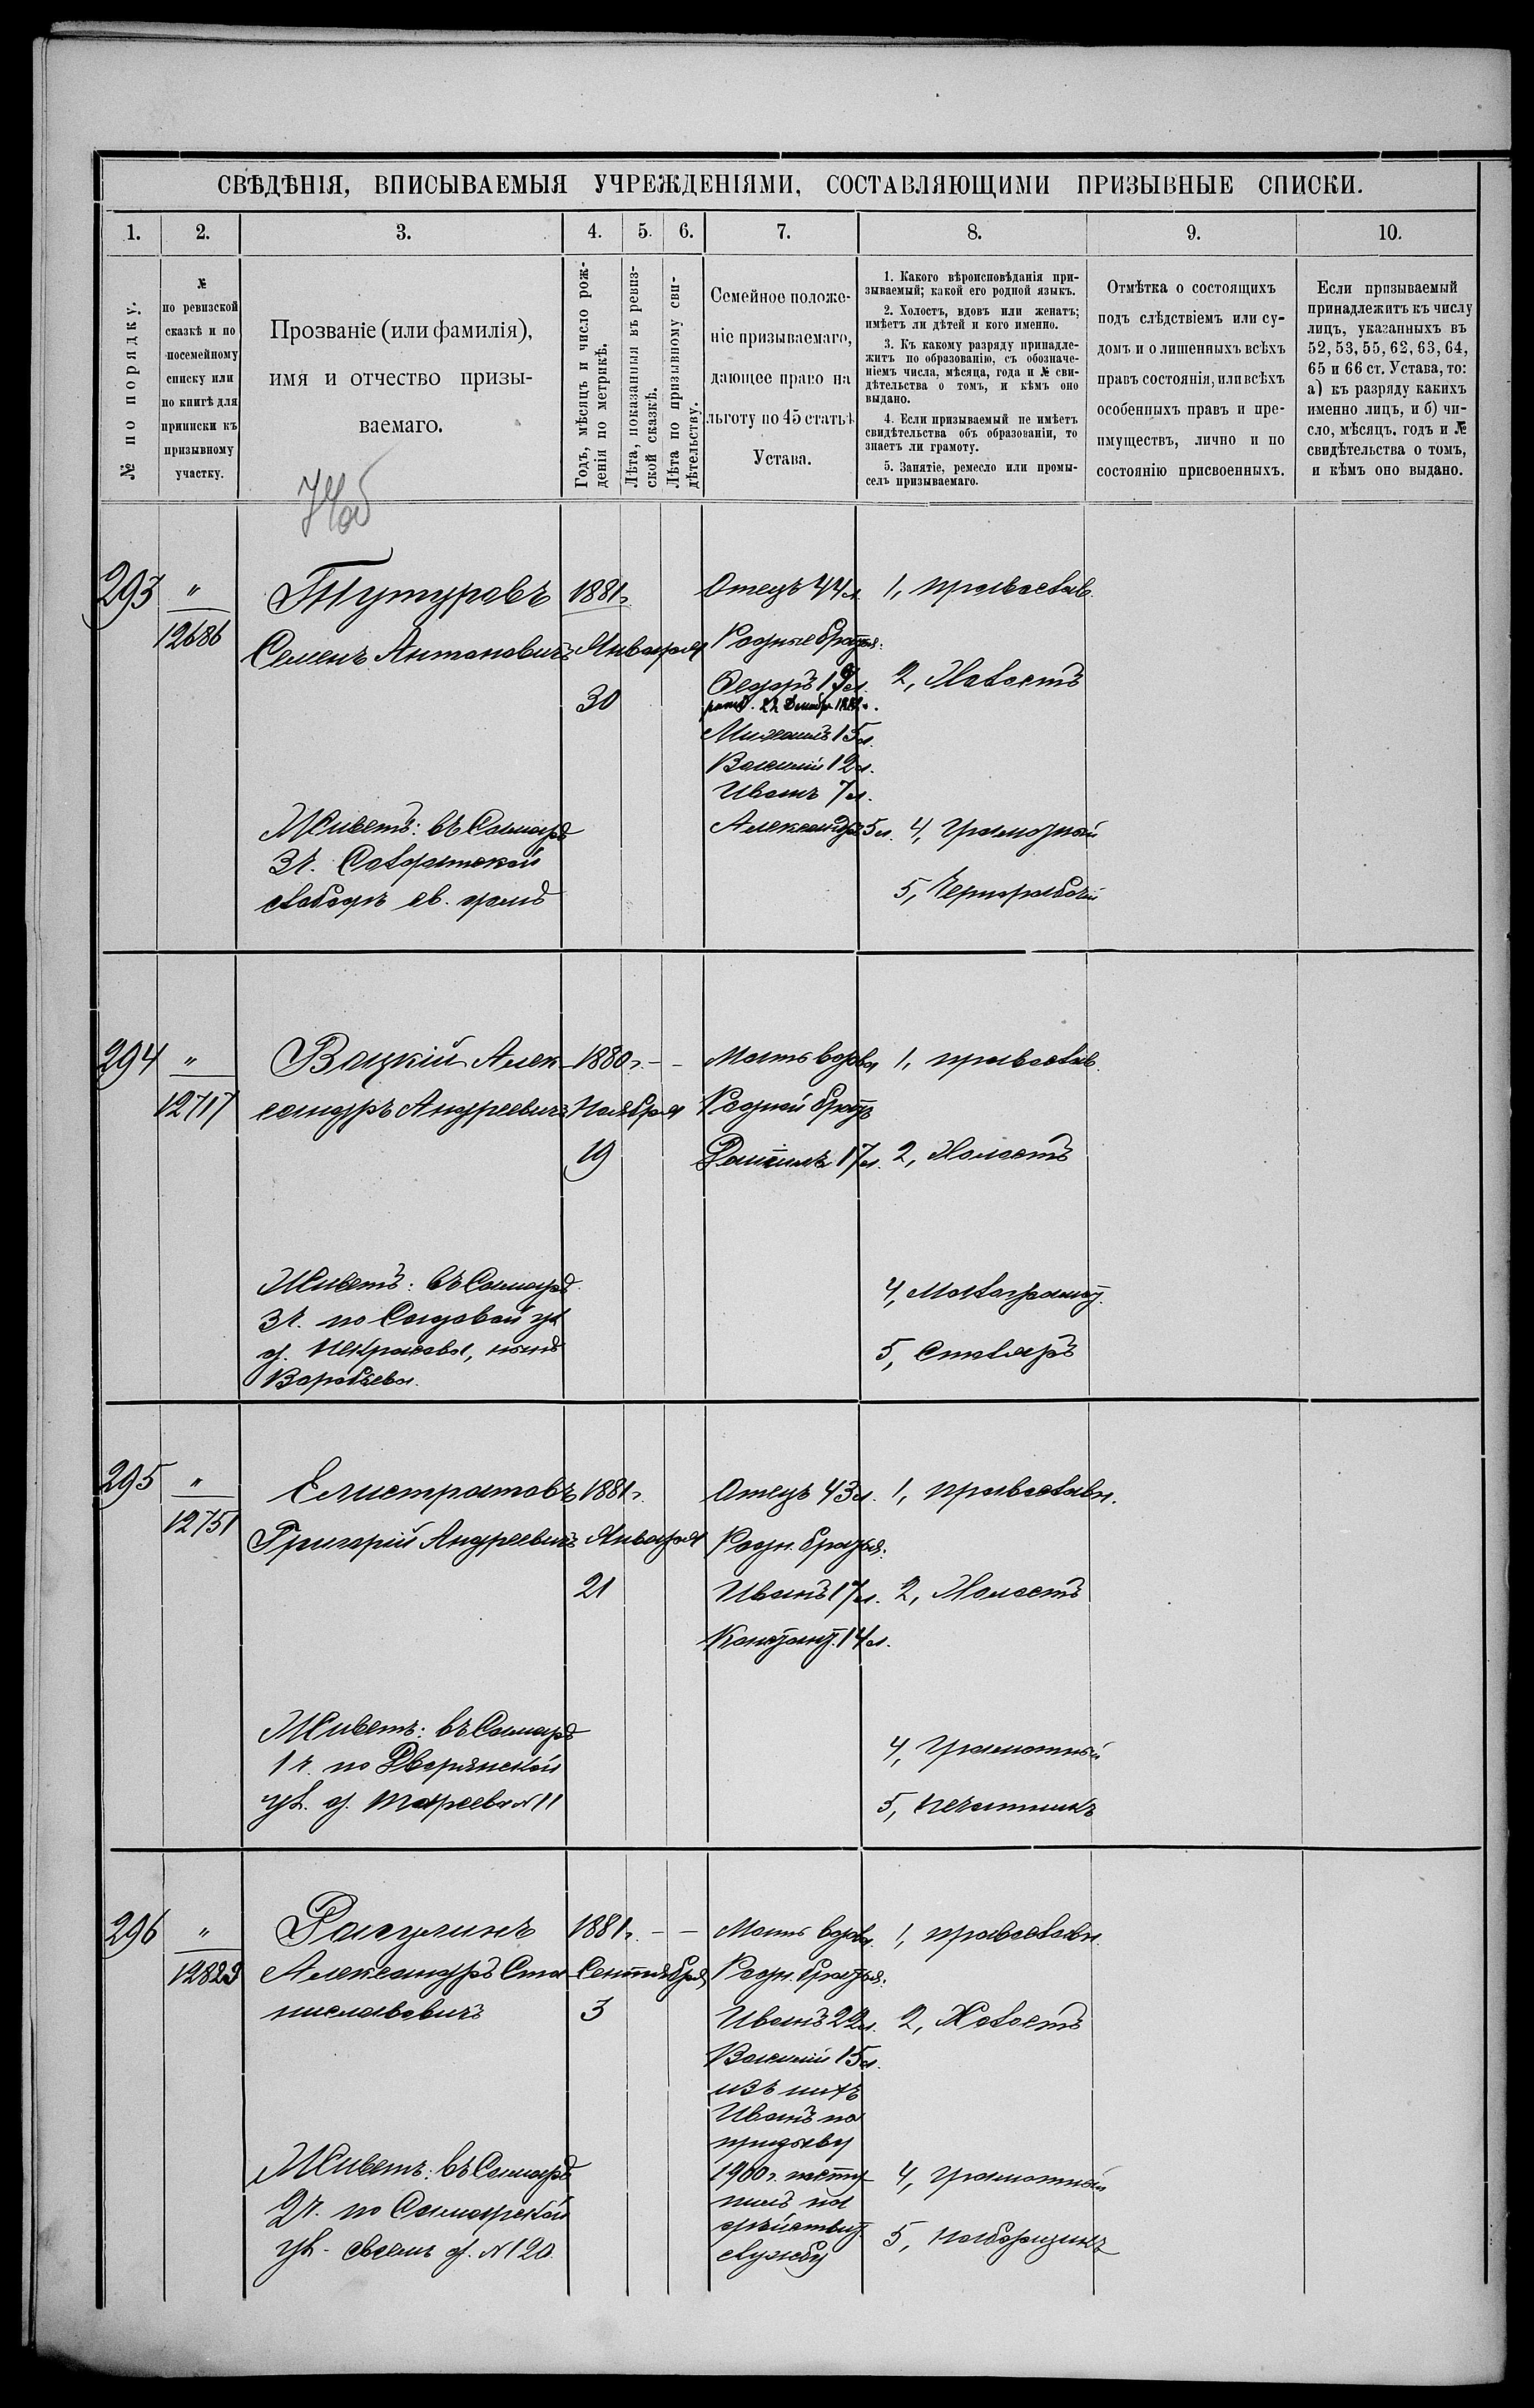 СВѢДѢНІЯ, ВПИСЫВАЕМЫЯ УЧРЕЖДЕНІЯМИ, СОСТАВЛЯЮЩИМИ ПРИЗЫВНЫЕ СПИСКИ.
1. 2. 3. 4. 5. 6. 7. 8. 9. 10.
№ по порядку.
№
по ревизской
сказкѣ и по
посемейному
списку или
по книгѣ для
приписки къ
призывному
участку.
Прозваніе (или фамилія),
имя и отчество призы-
ваемаго.
Годъ, мѣсяцъ и число рож-
денія по метрикѣ.
Лѣта, показанныя въ ревиз-
ской сказкѣ.
Лѣта по призывному сви-
дѣтельству.
Семейное положе-
ніе призываемаго,
дающее право на
льготу по 45 статьѣ
Устава.
1. Какого вѣроисповѣданія при-
зываемый; какой его родной языкъ.
2. Холостъ, вдовъ или женатъ;
имѣетъ ли дѣтей и кого именно.
3. Къ какому разряду принадле-
житъ по образованію, съ обозначе-
ніемъ числа, мѣсяца, года и № сви-
дѣтельства о томъ, и кѣмъ оно
выдано.
4. Если призываемый не имѣетъ
свидѣтельства объ образованіи, то
знаетъ ли грамоту.
5. Занятіе, ремесло или промы-
селъ призываемаго.
Отмѣтка о состоящихъ
подъ слѣдствіемъ или су-
домъ и о лишенныхъ всѣхъ
правъ состоянія, или всѣхъ
особенныхъ правъ и пре-
имуществъ, лично и по
состоянію присвоенныхъ.
Если призываемый
принадлежитъ къ числу
лицъ, указанныхъ въ
52, 53, 55, 62, 63, 64,
65 и 66 ст. Устава, то:
а) къ разряду какихъ
именно лицъ, и б) чи-
сло, мѣсяцъ, годъ и №
свидѣтельства о томъ,
и кѣмъ оно выдано.
293
"
12686
Тутуровъ
Семенъ Антоновичъ
Живетъ: въ Самарѣ
3 ч. Солдатской
слободѣ св. домѣ
1881 г.
Января
30
Отецъ 44 л.
Родные братья:
Федоръ 19 л.
22 Декабр. 1882 г.
Михаилъ 15 л.
Василій 12 л.
Иванъ 7 л.
Александръ 5 л.
1, православ.
2, Холостъ
4, Грамотный
5, Чернорабочій
294
"
12717
Вацкій Алек-
сандръ Андреевичъ
Живетъ: въ Самарѣ
3 ч. по Садовой ул
д. Некрасова, нынѣ
Воробьева.
1880 г. - -
Ноября
19
Мать вдова
Родной братъ
Даніилъ 17 л.
1, православ.
2, Холостъ
4, Малограмот.
5, Столяръ
295
"
12751
Елистратовъ
Григорій Андреевичъ
Живетъ: въ Самарѣ
1 ч. по Дворянской
ул. д. №11
1881 г.
Января
21
Отецъ 43 л.
Родн. братья:
Иванъ 17 л.
Констант. 14 л.
1, православн.
2, Холостъ
4, Грамотный
5, печатникъ
296
"
12823
Рагулинъ
Александръ Ста-
ниславовичъ
Живетъ: въ Самарѣ
2 ч. по Самарской
ул. своемъ д. №120
1881 г. - -
Сентября
3
Мать вдова.
Родн. братья:
Иванъ 22 л.
Василій 15 л.
изъ нихъ
Иванъ по
призыву
1900 г. посту-
пилъ на
дѣйствит.
службу
1, православн.
2, Холостъ
4, Грамотный
5, Наборщикъ